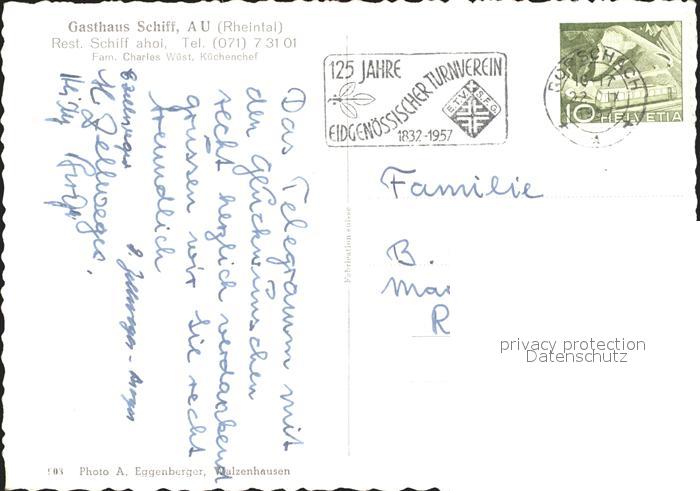 Gasthaus Schiff, AU (Rheintal)
Rest. Schiff ahoi, Tel. (071) 7 31 01
Fam. Charles Wüst, Küchenchef
125 JAHRE
EIDGENÖSSISCHER TURNVEREIN
1832-1957
E.T.V. S.F.G.
RORSCHACH
10 HELVETIA
Das Telegramm mit
den Glückwünschen
recht herzlich verdankend
grüssen wir Sie recht
freundlich
H. Zellweger,
Heidy
Familie
B.
Ma
R
Fabrication suisse
privacy protection
Datenschutz
Photo A. Eggenberger, Walzenhausen